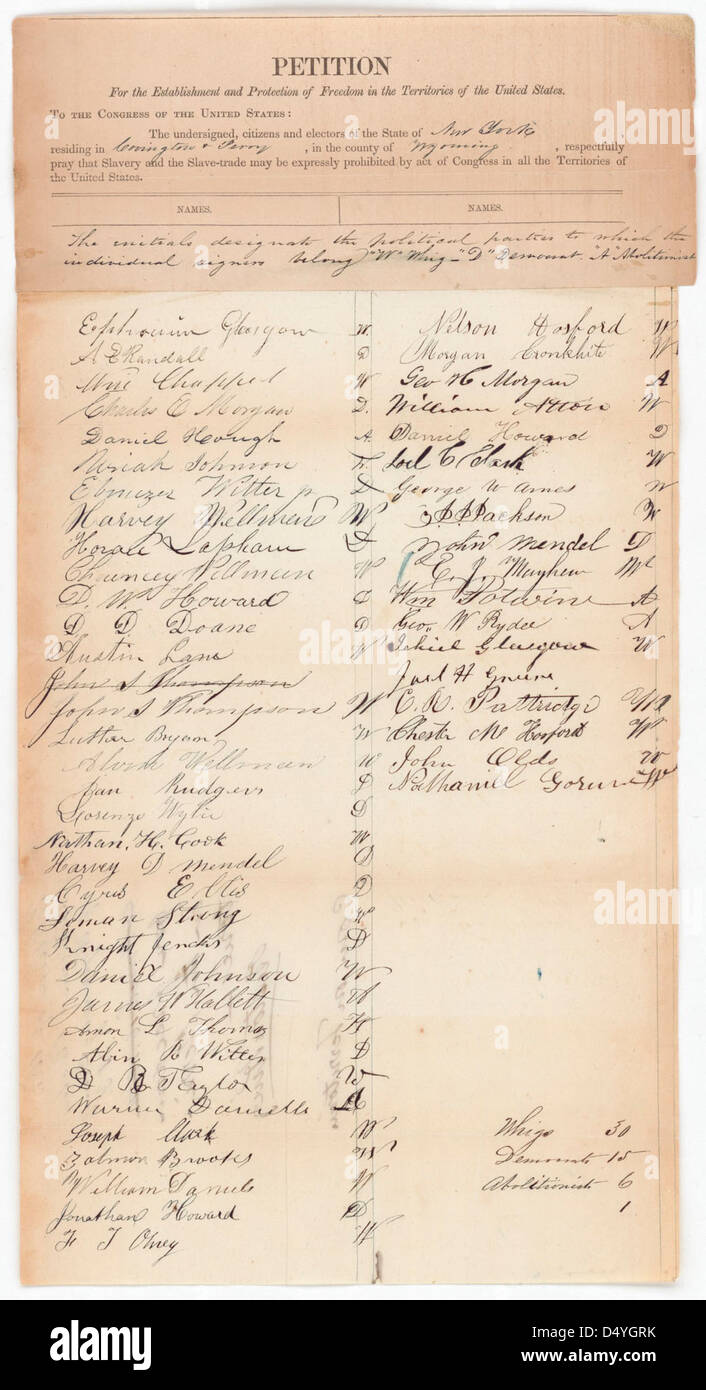 PETITION
For the Establishment and Protection of Freedom in the Territories of the United States.
To the Congress of the United States:
The undersigned, citizens and electors of the State of New York
residing in Covington & Perry, in the county of Wyoming, respectfully
pray that Slavery and the Slave-trade may be expressly prohibited by act of Congress in all the Territories of
the United States.
NAMES. NAMES.
The initials designate the political parties to which the
individual signers belong "W" Whig - "D" Democrat. "A" Abolitionist
Ephraim Glasgow W.
A E Randall D
Chappel W
Charles O Morgan D.
Daniel Hough A.
Johnson
Ebenezer Witter jr D
Harvey Wellman W
Horace Lapham D
Chauncey Wellman W
D. W. Howard D
D D Doane D
Austin Lane W
John S Thompson
John S Thompson W
Luther Bryam W
Wellman W
Jan Rudgers D
Lorenzo Wylie D
Nathan. H. Cook W
Harvey D Mendel D
Cyrus E Otis D
Loman Strong W
Knight Jenks D
Daniel Johnson W
James W Hallett W
Amon L Thomas
Albin R Witter D
D R Taylor W
Warner Daniells A
Joseph Clark W
Zalmon Brooks W
William Daniels W
Jonathan Howard D
F T Olney W
Nelson Hosford W
Morgan Cronkhite W
Geo H Morgan A
William Atton W
Daniel Howard D
Joel C Clark W
George W Ames W
Jackson W
John Mendel D
E. J. Mayhew W
Wm Potwine A
Geo. W Ryder A
Jehiel Glasgow W
Joel H Greene
C. R. Pattridge
Chester M Hosford W
John Olds W
Nathaniel W
Whigs 30
Democrats 15
Abolitionists 6
1
alamy
Image ID: D4YGRK
www.alamy.com